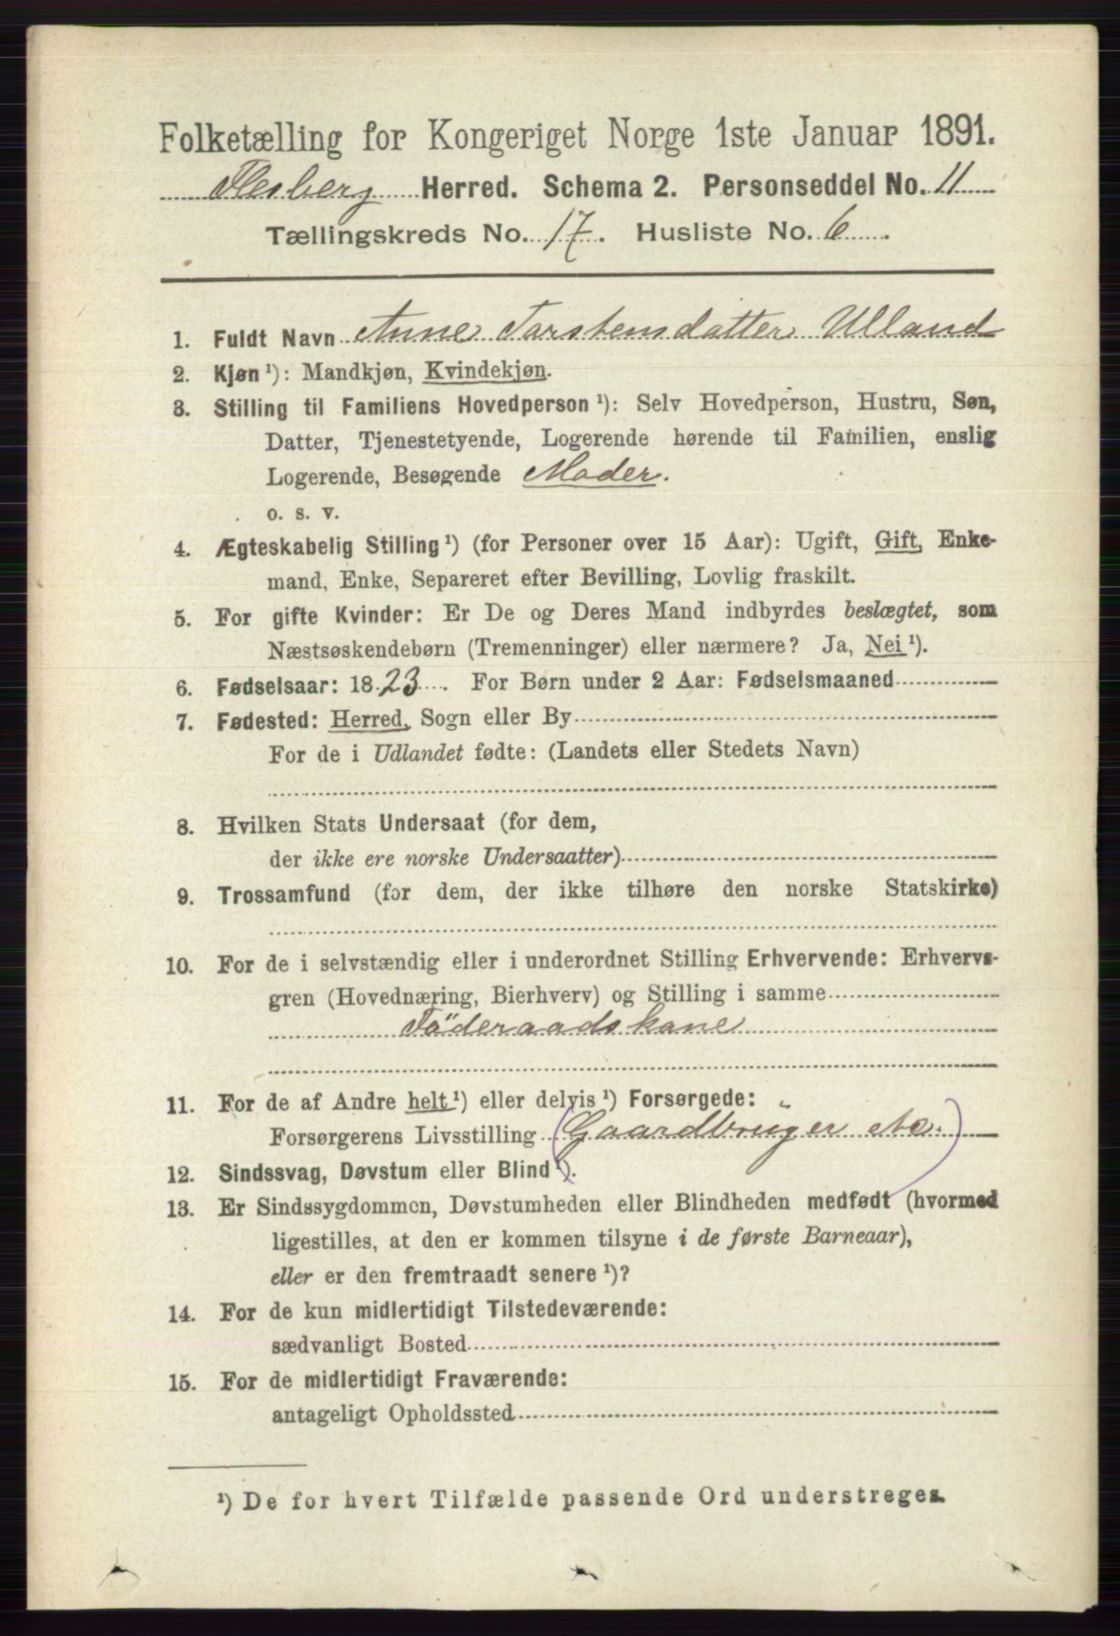 Folketælling for Kongeriget Norge 1ste Januar 1891.
Flesberg Herred. Schema 2. Personseddel No. 11
Tællingskreds No. 17. Husliste No. 6.
1. Fuldt Navn Anne Torstensdatter Ulland
2. Kjøn ¹): Mandkjøn, Kvindekjøn.
3. Stilling til Familiens Hovedperson ¹): Selv Hovedperson, Hustru, Søn,
Datter, Tjenestetyende, Logerende hørende til Familien, enslig
Logerende, Besøgende Moder.
o. s. v.
4. Ægteskabelig Stilling ¹) (for Personer over 15 Aar): Ugift, Gift, Enke-
mand, Enke, Separeret efter Bevilling, Lovlig fraskilt.
5. For gifte Kvinder: Er De og Deres Mand indbyrdes beslægtet, som
Næstsøskendebørn (Tremenninger) eller nærmere? Ja, Nei ¹).
6. Fødselsaar: 1823. For Børn under 2 Aar: Fødselsmaaned
7. Fødested: Herred, Sogn eller By
For de i Udlandet fødte: (Landets eller Stedets Navn)
8. Hvilken Stats Undersaat (for dem,
der ikke ere norske Undersaatter)
9. Trossamfund (for dem, der ikke tilhøre den norske Statskirke)
10. For de i selvstændig eller i underordnet Stilling Erhvervende: Erhvervs-
gren (Hovednæring, Bierhverv) og Stilling i samme
Föderaadskone
11. For de af Andre helt ¹) eller delvis ¹) Forsørgede:
Forsørgerens Livsstilling (Gaardbruger etc.)
12. Sindssvag, Døvstum eller Blind ¹).
13. Er Sindssygdommen, Døvstumheden eller Blindheden medfødt (hvormed
ligestilles, at den er kommen tilsyne i de første Barneaar),
eller er den fremtraadt senere ¹)?
14. For de kun midlertidigt Tilstedeværende:
sædvanligt Bosted
15. For de midlertidigt Fraværende:
antageligt Opholdssted
¹) De for hvert Tilfælde passende Ord understreges.